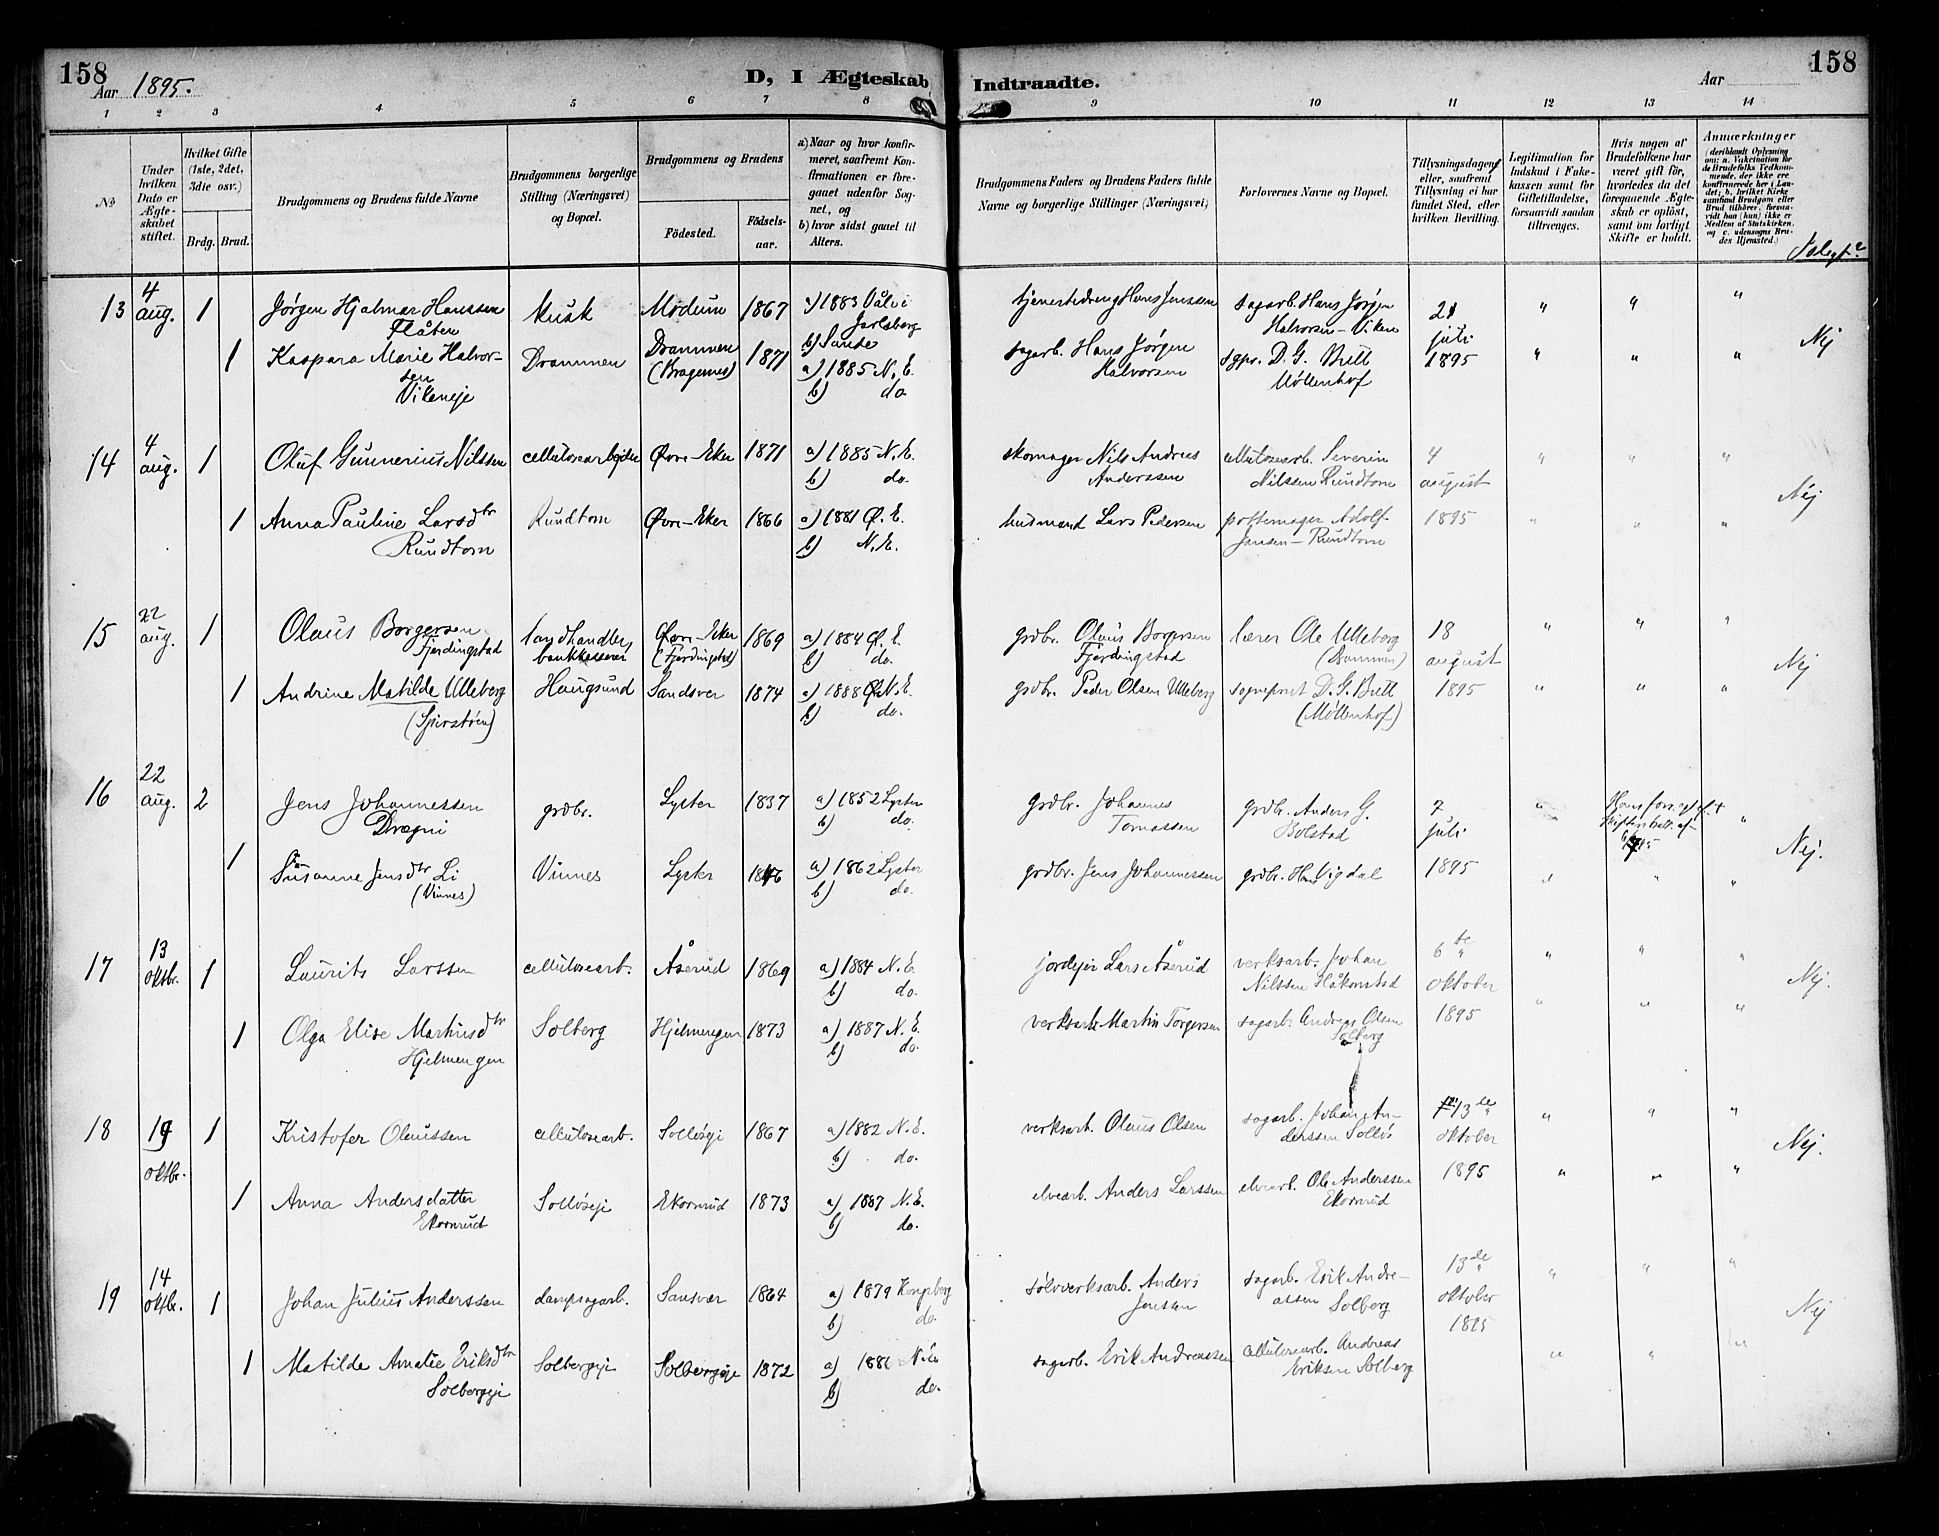 158
Aar 1895.
D, I Ægteskab Indtraadte.
Aar
158
1 2 3 4 5 6 7 8 9 10 11 12 13 14
No
Under hvilken Dato er Ægteskabet stiftet.
Hvilket Gifte (1ste, 2det, 3die osv.)
Brdg. Brud.
Brudgommens og Brudens fulde Navne
Brudgommens borgerlige Stilling (Næringsvei) og Bopæl.
Brudgommens og Brudens
Födested.
Födsels-aar.
a) Naar og hvor konfirmeret, saafremt Konfirmationen er foregaaet udenfor Sognet, og
b) hvor sidst gaaet til Alters.
Brudgommens Faders og Brudens Faders fulde Navne og borgerlige Stillinger (Næringsvei)
Forlovernes Navne og Bopæl.
Tillysningsdagen, eller, saafremt Tillysning ei har fundet Sted, efter hvilken Bevilling.
Legitimation for Indskud i Enkekassen samt for Giftetilladelse, forsaavidt saadan tiltrænges.
Hvis nogen af Brudefolkene har været gift för, hvorledes da det foregaaende Ægteskab er oplöst, samt om lovligt Skifte er holdt.
Anmærkninger
13 4 aug. 1 Jørgen Hjalmar Hanssen Flåten Musk Modum 1867 a) 1883 Våle i Jarlsberg b) Sande tjenestedreng Hans Jenssen sagarb. Hans Jørgen Halvorsen - Viken 21 juli 1895 " " "
1 Kaspara Marie Halvorsen Vikeneje Drammen Drammen (Bragernes) 1871 a) 1885 N. E. b) do sagarb. Hans Jørgen Halvorsen sgpr. D. G. Bull Møllenhof " " " Nej
14 4 aug. 1 Oluf Gunnerius Nilssen cellulosearbejder Øvre-Eker 1871 a) 1885 N. E. b) do. skomager Nils Andreas Anderssen cellulosearb. Severin Nilssen Rundtom 4 august 1895 " " "
1 Anna Pauline Larsdtr Rundtom Rundtom Øvre-Eker 1866 a) 1881 Ø. E. b) N. E. husmand Lars Pedersen pottemager Adolf Jansen - Rundtom " " " Nej
15 22 aug. 1 Olaus Borgersen Fjerdingstad landhandler, bankkasserer Øvre-Eker (Fjerdingstad) 1869 a) 1884 Ø. E. b) do. grdbr. Olaus Borgersen Fjerdingstad lærer Ole Ulleberg (Drammen) 18 august 1895 " " "
1 Andrine Matilde Ulleberg Haugsund Sandsver 1874 a) 1888 N. E. b) do. grdbr. Peder Olsen Ulleberg sogneprest D. G. Bull (Møllenhof) " " " Nej
16 22 aug. 2 Jens Johannessen Drægni grdbr. Lyster 1837 a) 1852 Lyster b) do. grdbr. Johannes Tomassen grdbr. Anders G. Bolstad 7 juli 1895 " "
1 Susanne Jensdtr Li (Vinnes) Vinnes Lyster 1846 a) 1862 Lyster b) do. grdbr. Jens Johannessen grdbr. Vigdal " " " Nej.
17 13 oktbr. 1 Laurits Larssen cellulosearb. Åserud 1869 a) 1884 N. E. b) do. jordejer Lars Åserud verksarb. Johan Nilssen Håkonstad 6te oktober 1895 " " "
1 Olga Elise Martinsdtr Hjelmengen Solberg Hjelmengen 1873 a) 1887 N. E. b) do. verksarb. Martin Torgersen sagarb. Andreas Olsen Solberg " " " Nej.
18 19 oktbr. 1 Kristofer Olaussen cellulosearb. Solløseje 1867 a) 1882 N. E. b) do. verksarb. Olaus Olsen sagarb. Johan Anderssen Solløs 13de oktober 1895 " " "
1 Anna Andersdatter Ekornrud Solløseje Ekornrud 1873 a) 1887 N. E. b) do. elvearb. Anders Larssen elvearb. Ole Anderssen Ekornrud " " " Nej.
19 14 oktbr. 1 Johan Julius Anderssen dampsagarb. Sansvær 1864 a) 1879 Kongsberg b) do. sølvverksarb. Anders Jenssen sagarb. Erik Andreassen Solberg 13de oktober 1895 " " "
1 Matilde Amalie Eriksdtr Solbergeje Solbergeje Solbergeje 1872 a) 1886 N. E. b) do. sagarb. Erik Andreassen cellulosearb. Andreas Eriksen Solberg " " " Nej